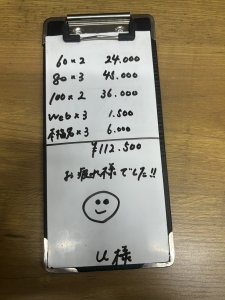 60×2 24.000
80×3 45.000
100×2 36.000
Web×3 1.500
本指名×3 6.000
¥112.500
お疲れ様でした!!
U様